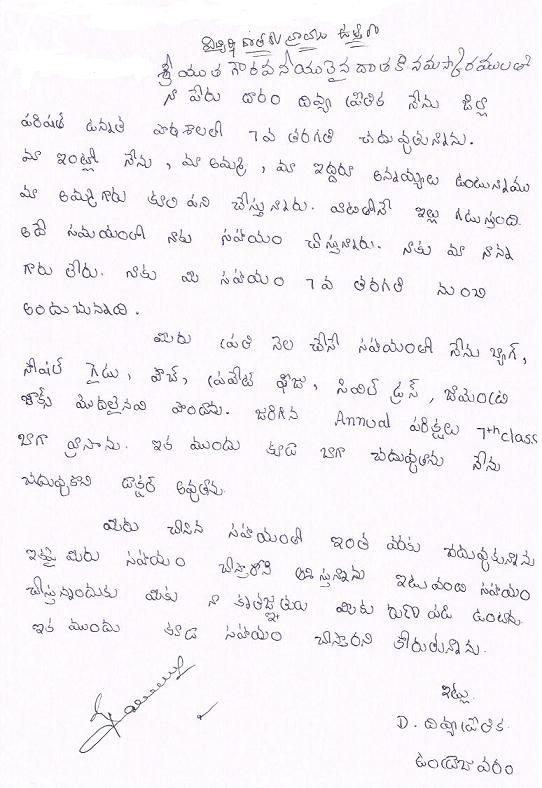 విద్యార్థి దాతకు వ్రాయు ఉత్తరం
శ్రీయుత గౌరవనీయులైన దాతకి నమస్కారములతో
నా పేరు దారం దివ్య మౌళిక నేను జిల్లా
పరిషత్ ఉన్నత పాఠశాలలో 7వ తరగతి చదువుతున్నాను.
మా ఇంట్లో నేను, మా అమ్మ, మా ఇద్దరూ అన్నయ్యలు ఉంటున్నాము
మా అమ్మగారు కూలి పని చేస్తున్నారు. వాటితోనే ఇల్లు గడుస్తుంది.
అదే సమయంలో నాకు సహాయం చేస్తున్నారు. నాకు మా నాన్న
గారు లేరు. నాకు మి సహాయం 7వ తరగతి నుండి
అందుచున్నది.
మిరు ప్రతి నెల చేసే సహయంతో నేను బ్యాగ్,
సోషల్ గైడు, వాచ్, ప్రవేట్ ఫీజు, సివిల్ డ్రస్, జామెంట్రి
బాక్స్ మొదలైనవి పొందాను. జరిగిన Annual పరిక్షలు 7th class
బాగా వ్రాసాను. ఇక ముందు కూడా బాగా చదువుతాను నేను
చదువుకొని డాక్టర్ అవుతాను.
మిరు చేసిన సహాయంతో ఇంత వరకు చదువుకున్నాను
ఇకపై మిరు సహాయం చేస్తారని ఆశిస్తున్నాను ఇటువంటి సహాయం
చేస్తున్నందుకు మికు నా కృతజ్ఞతలు మికు రుణ పడి ఉంటాను
ఇక ముందు కూడా సహాయం చేస్తారని కోరుతున్నాను.
ఇట్లు
D. దివ్యమౌళిక
ఉండ్రాజవరం